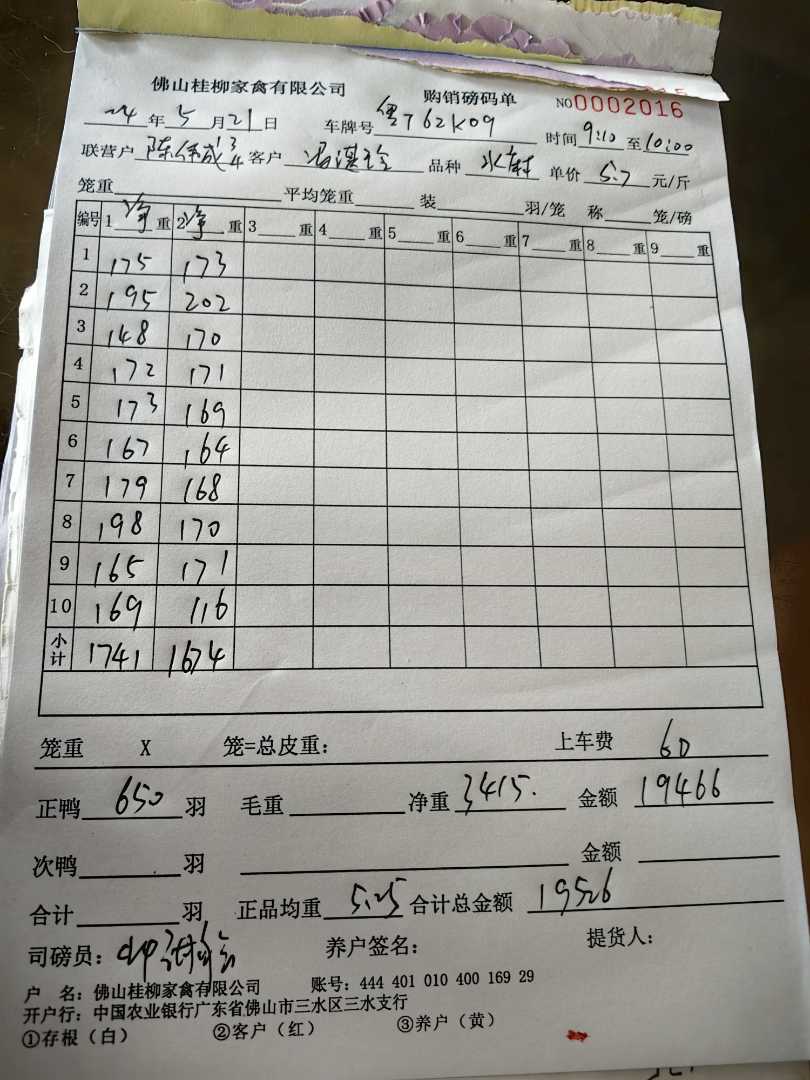 佛山桂柳家禽有限公司 购销磅码单 NO0002016
24 年 5 月 21 日 车牌号 粤T62K09 时间 9:10 至 10:00
联营户 陈伟成 客户 冯 品种 水鸭 单价 5.7 元/斤
笼重 平均笼重 装 羽/笼 称 笼/磅
编号 1 净 重 2 净 重 3 重 4 重 5 重 6 重 7 重 8 重 9 重
1 175 173
2 195 202
3 148 170
4 172 171
5 173 169
6 167 164
7 179 168
8 198 170
9 165 171
10 169 116
小计 1741 1674
笼重 X 笼=总皮重: 上车费 60
正鸭 650 羽 毛重 净重 3415. 金额 19466
次鸭 羽 金额
合计 羽 正品均重 5.25 合计总金额 19526
司磅员: 养户签名: 提货人:
户 名: 佛山桂柳家禽有限公司 账号: 444 401 010 400 169 29
开户行: 中国农业银行广东省佛山市三水区三水支行
①存根（白） ②客户（红） ③养户（黄）